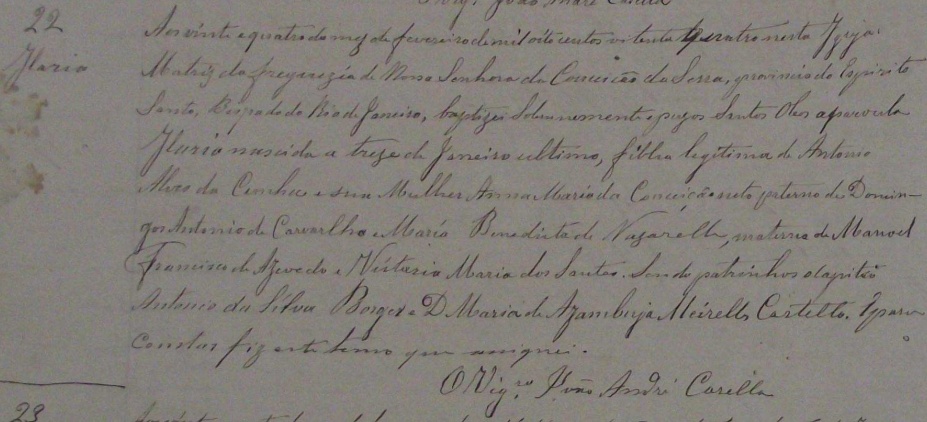 João André Casella
22
Aos vinte e quatro do mez de fevereiro de mil oito centos oitenta quatro nesta Igreja
Ilario
Matriz da freguezia de Nossa Senhora da Conceição da Serra, provincia do Espirito
Santo, Bispado do Rio de Janeiro, baptizei Solennemente e puz os Santos Oleos a parvula
Ilaria nascida a treze de Janeiro ultimo, filha legitima de Antonio
Alves da Cunha e sua Mulher Anna Maria da Conceição neto paterno de Domin-
gos Antonio de Carvarlho e Maria Benedicta de Nazareth, materna de Manoel
Francisco de Azevedo e Maria dos Santos. Sendo patrinhos o Capitão
Antonio da Silva Borges e D Maria de Azambuja Meirells Castello. E para
constar fiz este termo que assignei.
O Vigro João André Casella
23